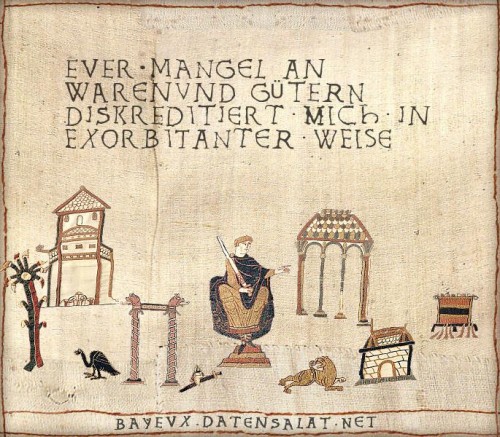 EVER · MANGEL AN
WARENVND GÜTERN
DISKREDITIERT · MICH · IN
EXORBITANTER · WEISE
BAYEVX.DATENSALAT.NET